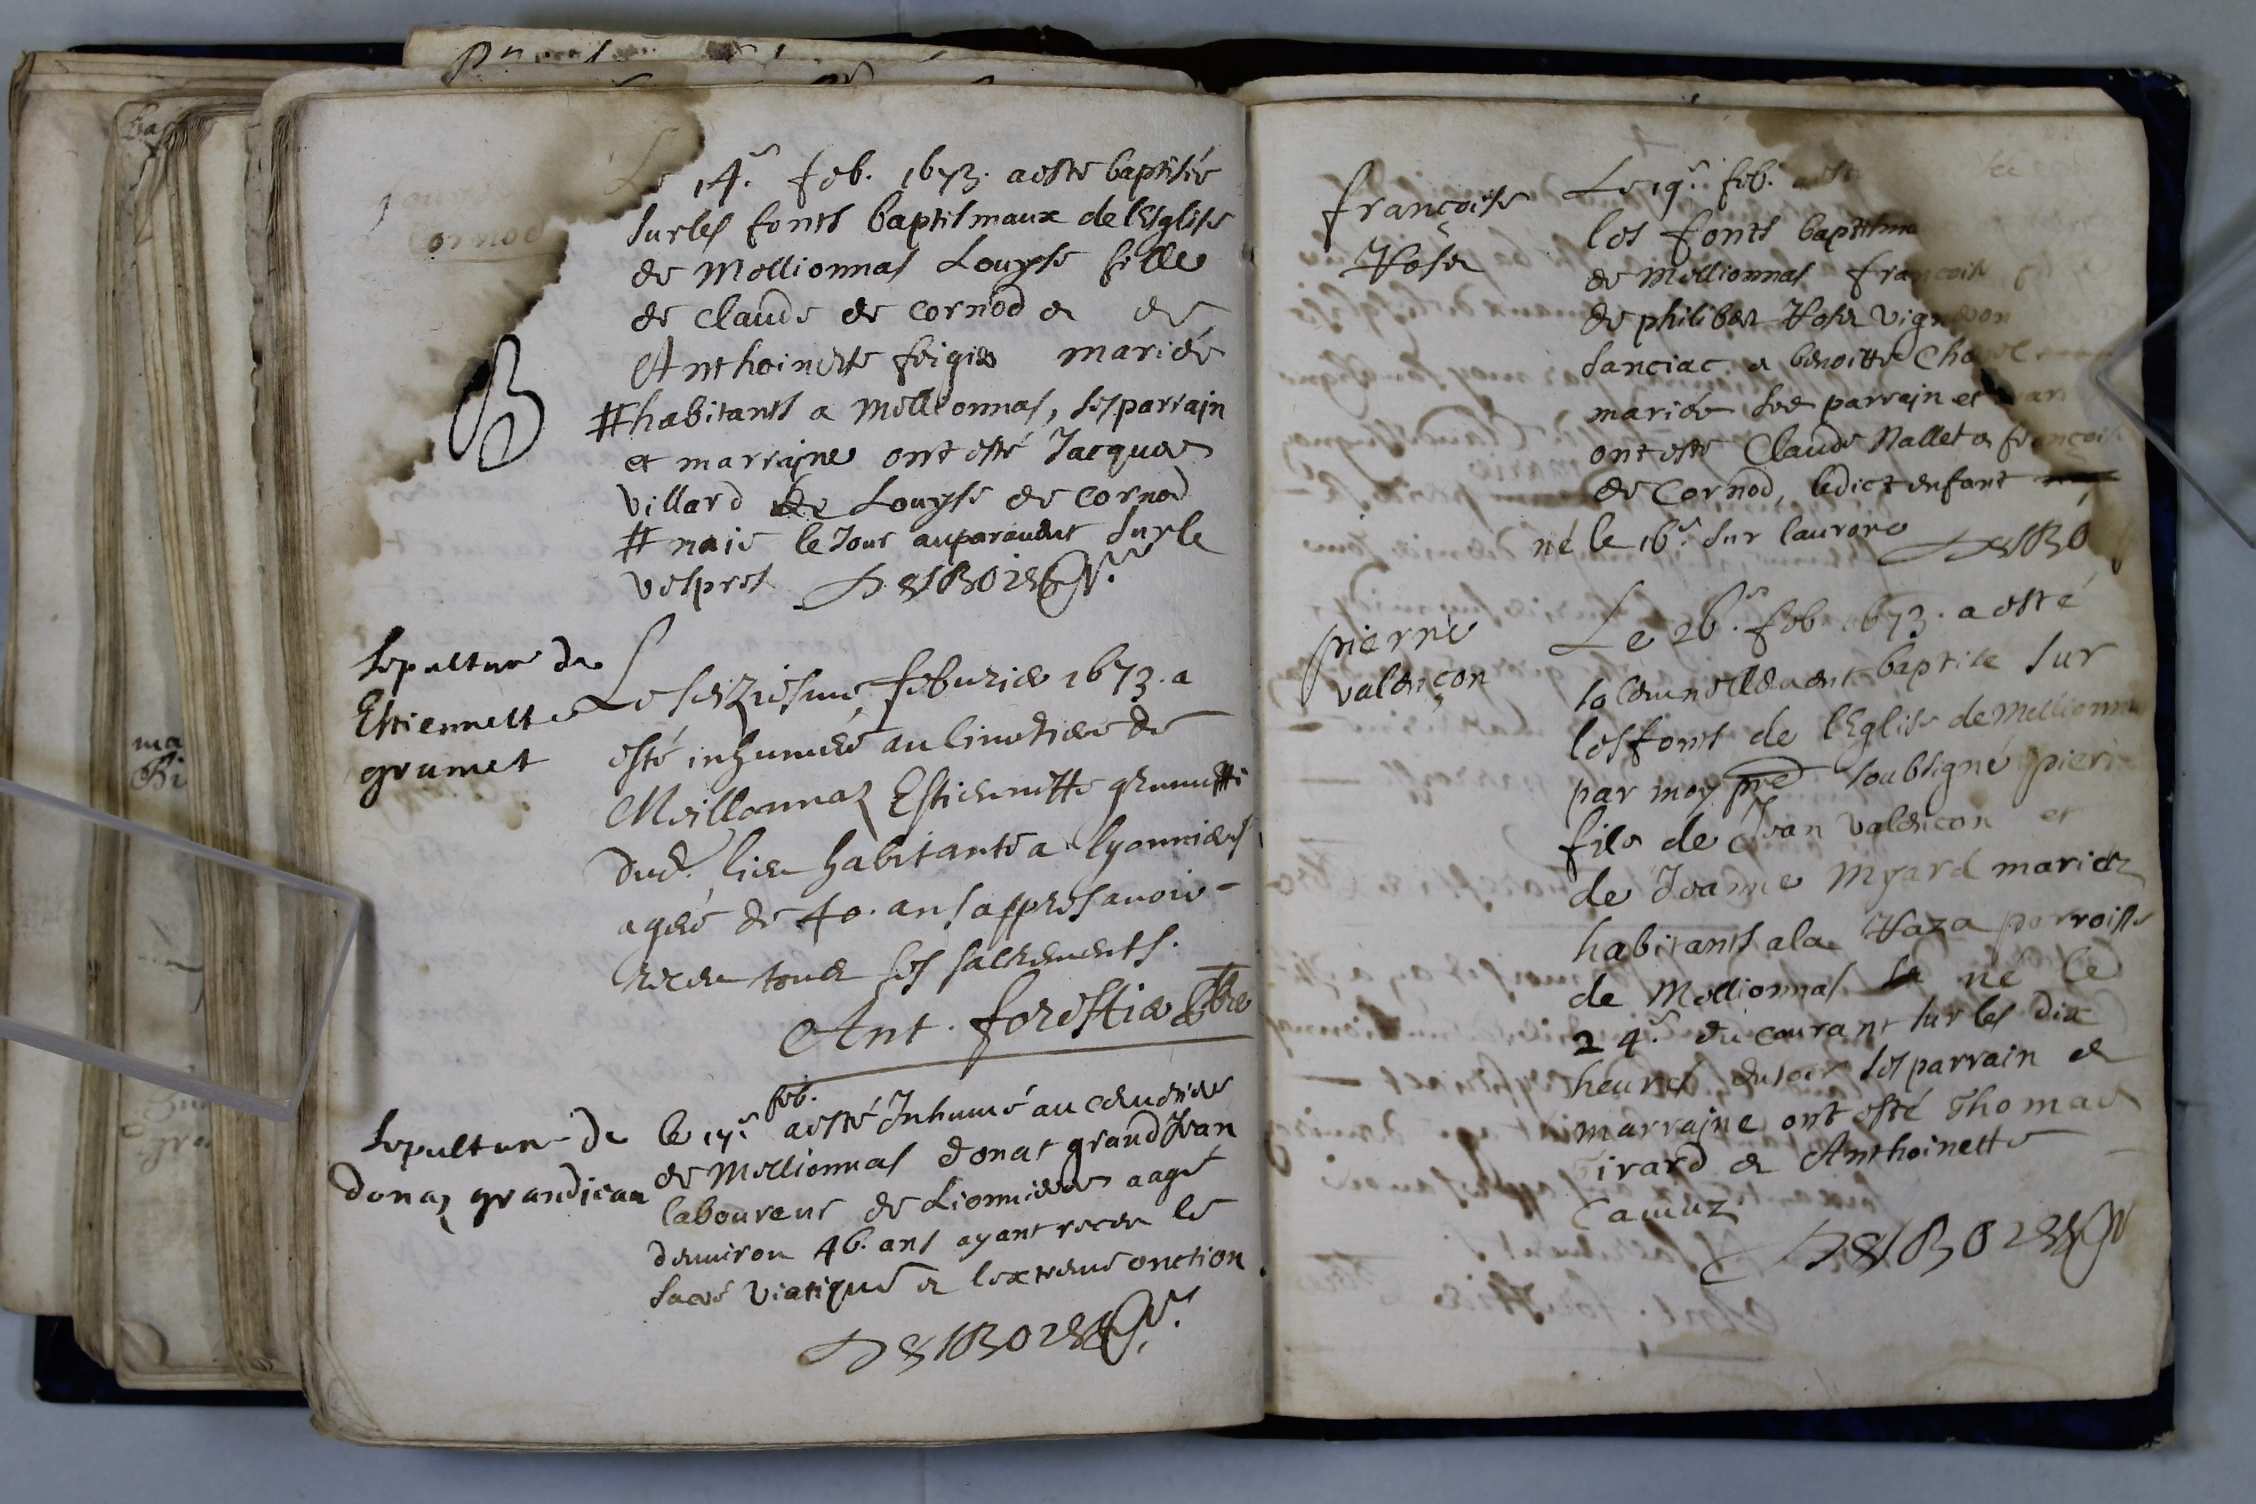 Cornod
Le 14.e feb. 1673. a esté baptisée
sur les fonts baptismaux de l'Esglise
de Mellionnas Louyse fille
de Claude de Cornod et de
Anthoinette feigie mariés
# habitants a Mellionnas, ses parrain
et marrajne ont esté Jacques
Villard et Louyse de Cornod
# naie le Jour auparavant sur le
vespres DESBORDES
Sepulture de
Estiennette
grumet
Le seiziesme febvrier 1673. a
esté inhumée au cimetiere de
Meillonnaz Estiennette grumette
dud. lieu habitante a lyonnieres
agée de 40. ans appres avoir
receu tous ses sacrements.
Ant. forestier pbre
Sepulture de
Donaz grandjean
feb.
le 17.e a esté Inhumé au cemetiere
de Mellionnas donat grand Jean
laboureur de Lionnieres aagé
d'environ 46. ans ayant receu le
sacré viatique et l'extreme onction
DESBORDES
françoise
Rose
Le 19.e feb.
les fonts baptism
de Mellionnas françoise
de philibert Rose vigneron
sanciac et benoitte
mariés ses parrajn et
ont esté Claude Nallet et françoise
de Cornod, ledict enfant
né le 16.e sur l'aurore DESBO
pierre
valençon
Le 26.e feb. 1673. a esté
solemnellement baptisé sur
les fonts de l'Eglise de Mellionnas
par moy pre soubsigné pierre
fils de Jean valençon et
de Jeanne Myard mariez
habitants a la Raza parroisse
de Mellionnas né le
24.e du courant sur les dix
heures du soir ses parrain et
marrajne ont esté Thomas
Girard et Anthoinette
Camuz
DESBORDES